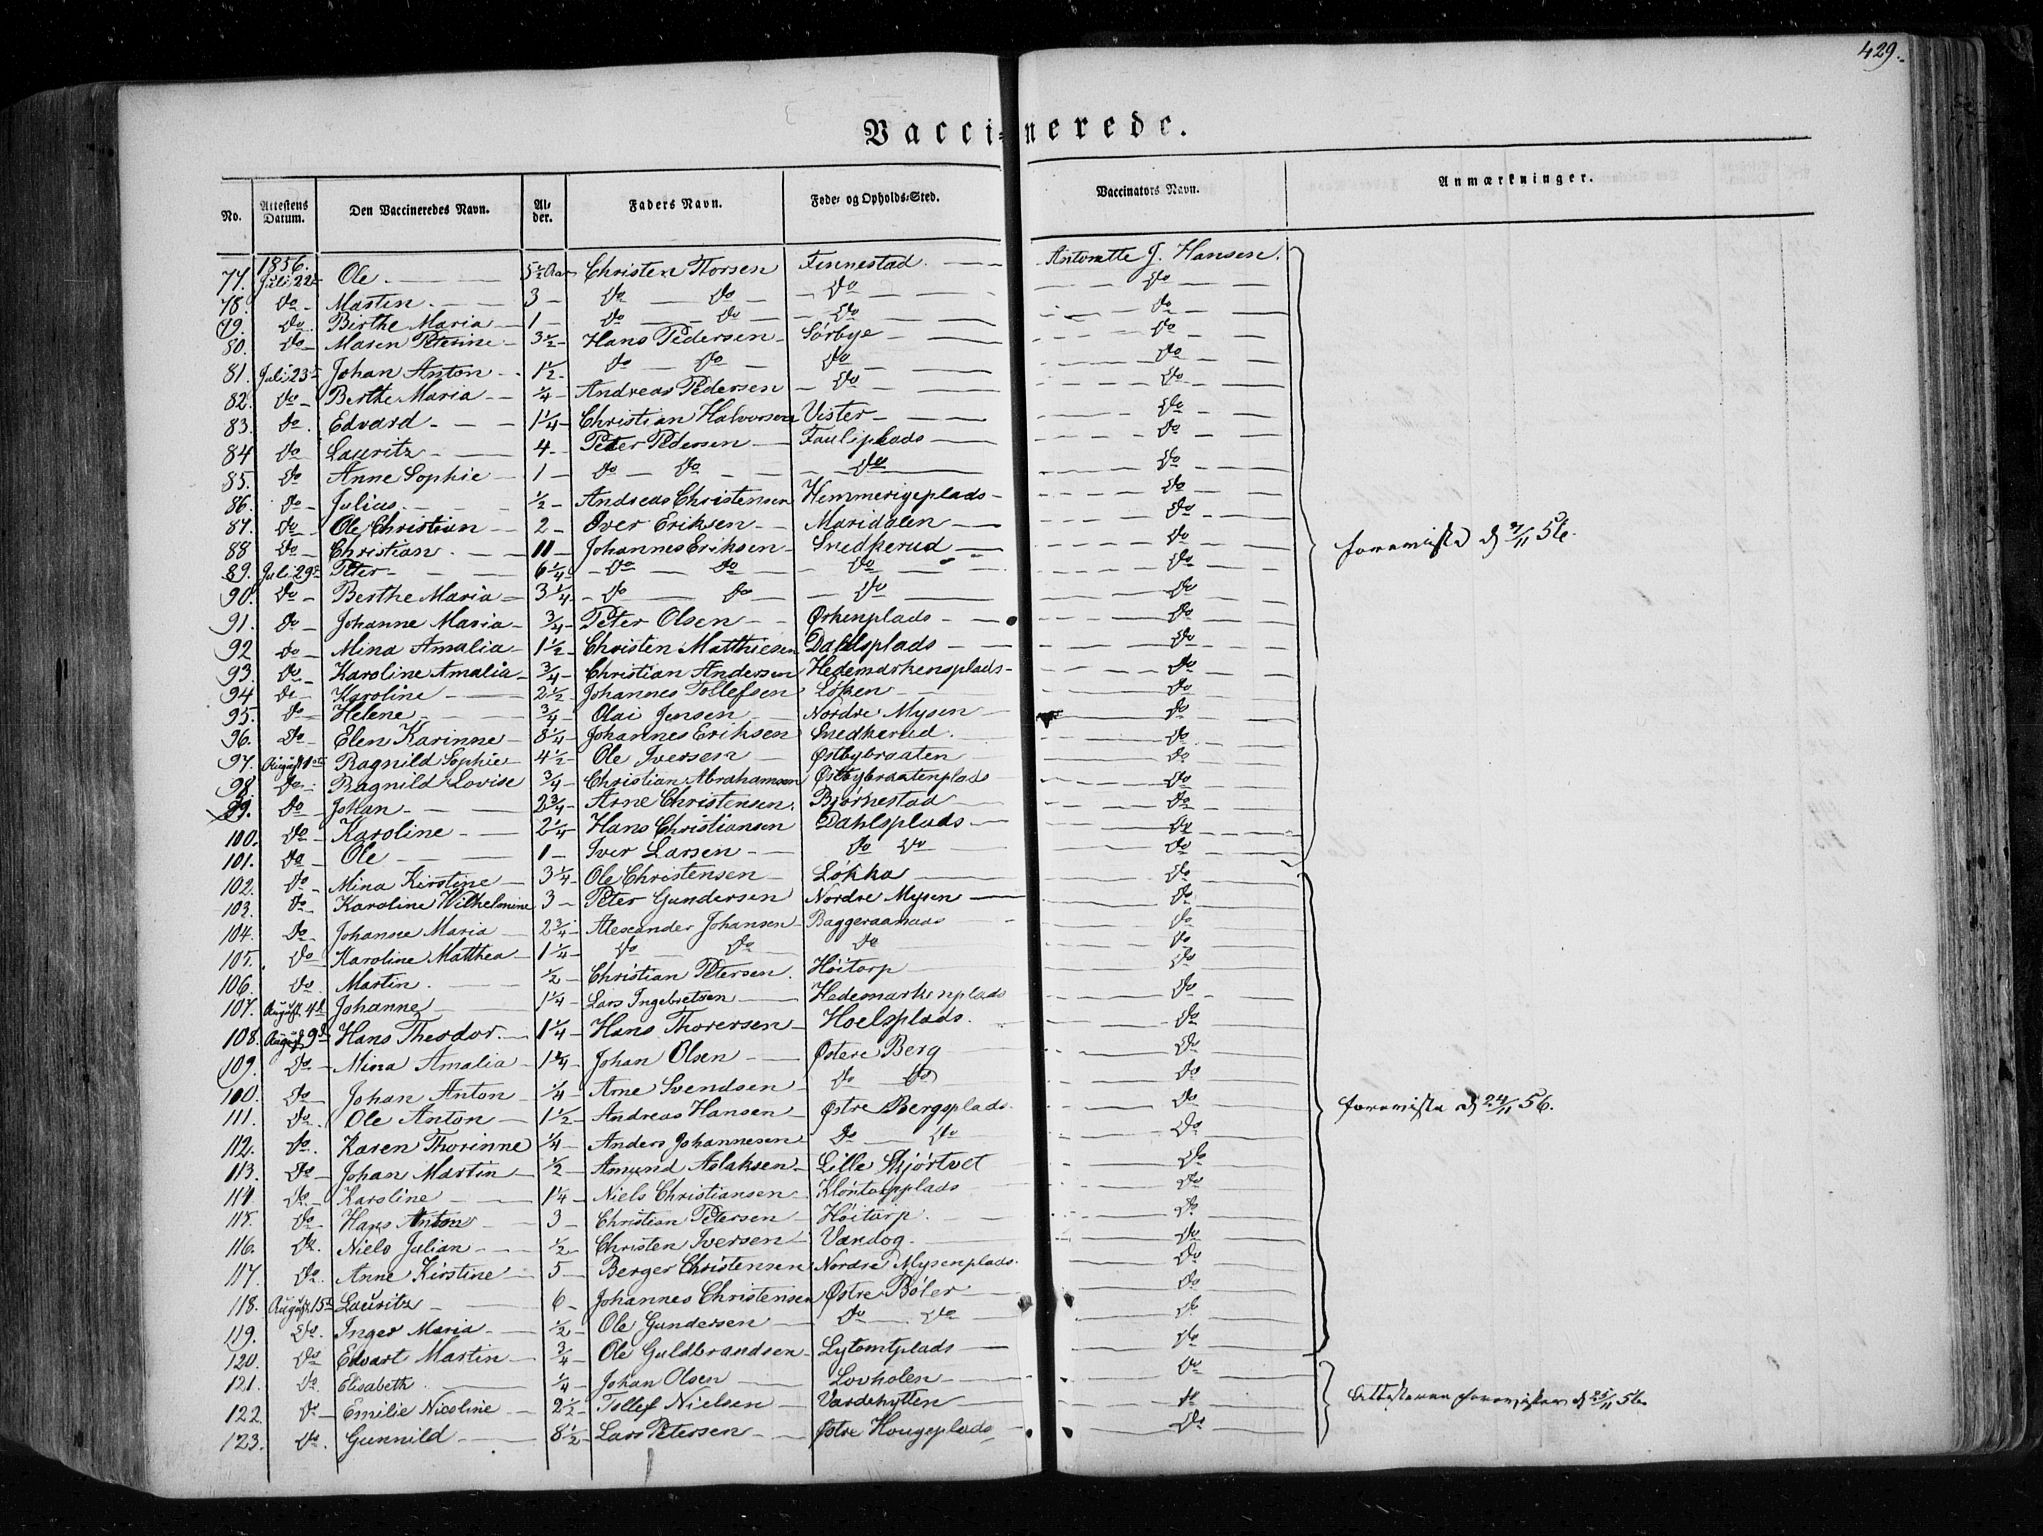 429.
Vaccinerede.
No. | Attestens Datum. | Den Vaccineredes Navn. | Alder. | Faders Navn. | Føde- og Opholds-Sted. | Vaccinators Navn. | Anmærkninger.
1856.
77. Juli 22 Ole 5½ Aar Christen Thorsen Finnestad. Antonette J. Hansen.
78. do Martin. 3 do do do do
79. do. Birthe Maria 1 do do do do
80. do Maren Peterine 3½ Hans Pedersen Sørbye do
81. Juli 23 Johan Anton 1½ do do do do
82. do Berthe Maria ¼ Andreas Pedersen do do
83. do. Edvard 1¼ Christian Halvorsen Vister do
84 do Lauritz 4 Peter Pedersen Faulsplads do
85. do Anne Sophie 1 do do do do
86. do Julius. ½ Andreas Christensen Hemmerigsplads do
87. do Ole Christian 2 Over Eriksen Maridalen do
88 do Christian. 11 Johannes Eriksen Snedkerud do
89. Juli 29 Peter 6¼ do do do do
90. do Berthe Maria 3¼ do do do do
91. do Johanne Maria ¾ Peter Olsen Ørkenplads do
92 do Mina Amalia 1½ Christen Matthiesen Dahlsplads do
93. do Karoline Amalia ¾ Christian Andersen Hedemarkensplads do
94 do Karoline 2½ Johannes Tollefsen Løken do
95. do Helene ¾ Olai Jensen Nordre Mysen do
96. do Elen Karinne 8¼ Johannes Eriksen Snedkerud. do
97. August 1ste Ragnild Sophie 4½ Ole Iversen Østbybraaten do
98 do Ragnild Lovise ¾ Christian Abrahamsen Østbybraatenplads do
99. do Johan 2¾ Arne Christensen. Bjørnestad do
100. do Karoline 2¼ Hans Christiansen Dahlsplads do
101. do Ole 1 Iver Larsen do do do
102. do Mina Kirstine 3¼ Ole Christensen Løkka do
103. do Karoline Wilhelmine 3 Peter Gundersen Nordre Mysen do
104. do Johanne Maria 2¾ Alexander Johansen do
105. do Karoline Matthea 1¼ do do do do
106. do. Martin. ½ Christian Petersen. Høitorp do
107. August 4d Johanne 1¼ Lars Ingebretsen Hedemarkenplads do
108. August 9d Hans Theodor. 1¼ Hans Thorersen Hoelsplads. do
109. do Mina Amalia 1¾ Johan Olsen Østere Berg do
100. do Johan Anton ¼ Arne Svendsen do do do
111. do. Ole Anton 1½ Andreas Hansen Østre Bergsplads. do
112. do. Karen Thorinne ¼ Anders Johannesen do do do
113. do Johan Martin ½ Amund Aslaksen Lille Skjørtvet do
114 do. Karoline 1¼ Niels Christiansen Kløntorpplads do
115. do Hans Anton 3 Christian Petersen Høitorp. do
116. do. Niels Julian ½ Christen Iversen Vandog. do
117. do. Anne Kirstine 5 Berger Christensen Nordre Mysenplads. do
118. August 15d Lauritz 6 Johannes Christensen Østre Bøler do
119. do. Inger Maria ½ Ole Gundersen do do do
120. do Edvart Martin ¾ Ole Guldbrandsen Lytomtplads do
121. do. Elisabeth ¼ Johan Olsen Lovholen do
122 do Emilie Nicoline 2½ Tollef Nielsen Vardehytten do
123. do. Gunnild 8½ Lars Petersen Østre Hougsplads do
foreviste d 7/11 56.
foreviste d 24/11 56.
Attesterne d 25/11 56